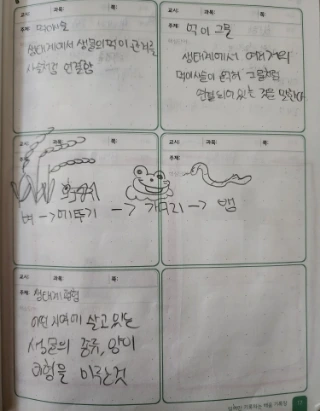 교시: 과목: 쪽:
주제: 먹이사슬
생태계에서 생물의 먹이 관계를
사슬처럼 연결함
교시: 과목: 쪽:
주제: 먹이 그물
생태계에서 여러 개의
먹이사슬이 얽혀 그물처럼
연결되어 있는 것을 말한다
교시: 과목: 쪽:
주제:
교시: 과목: 쪽:
주제:
벼 → 메뚜기 → 개구리 → 뱀
교시: 과목: 쪽:
주제: 생태계 평형
어떤 지역에 살고 있는
생물의 종류, 양이
평형을 이루는 것
교시: 과목: 쪽:
주제: